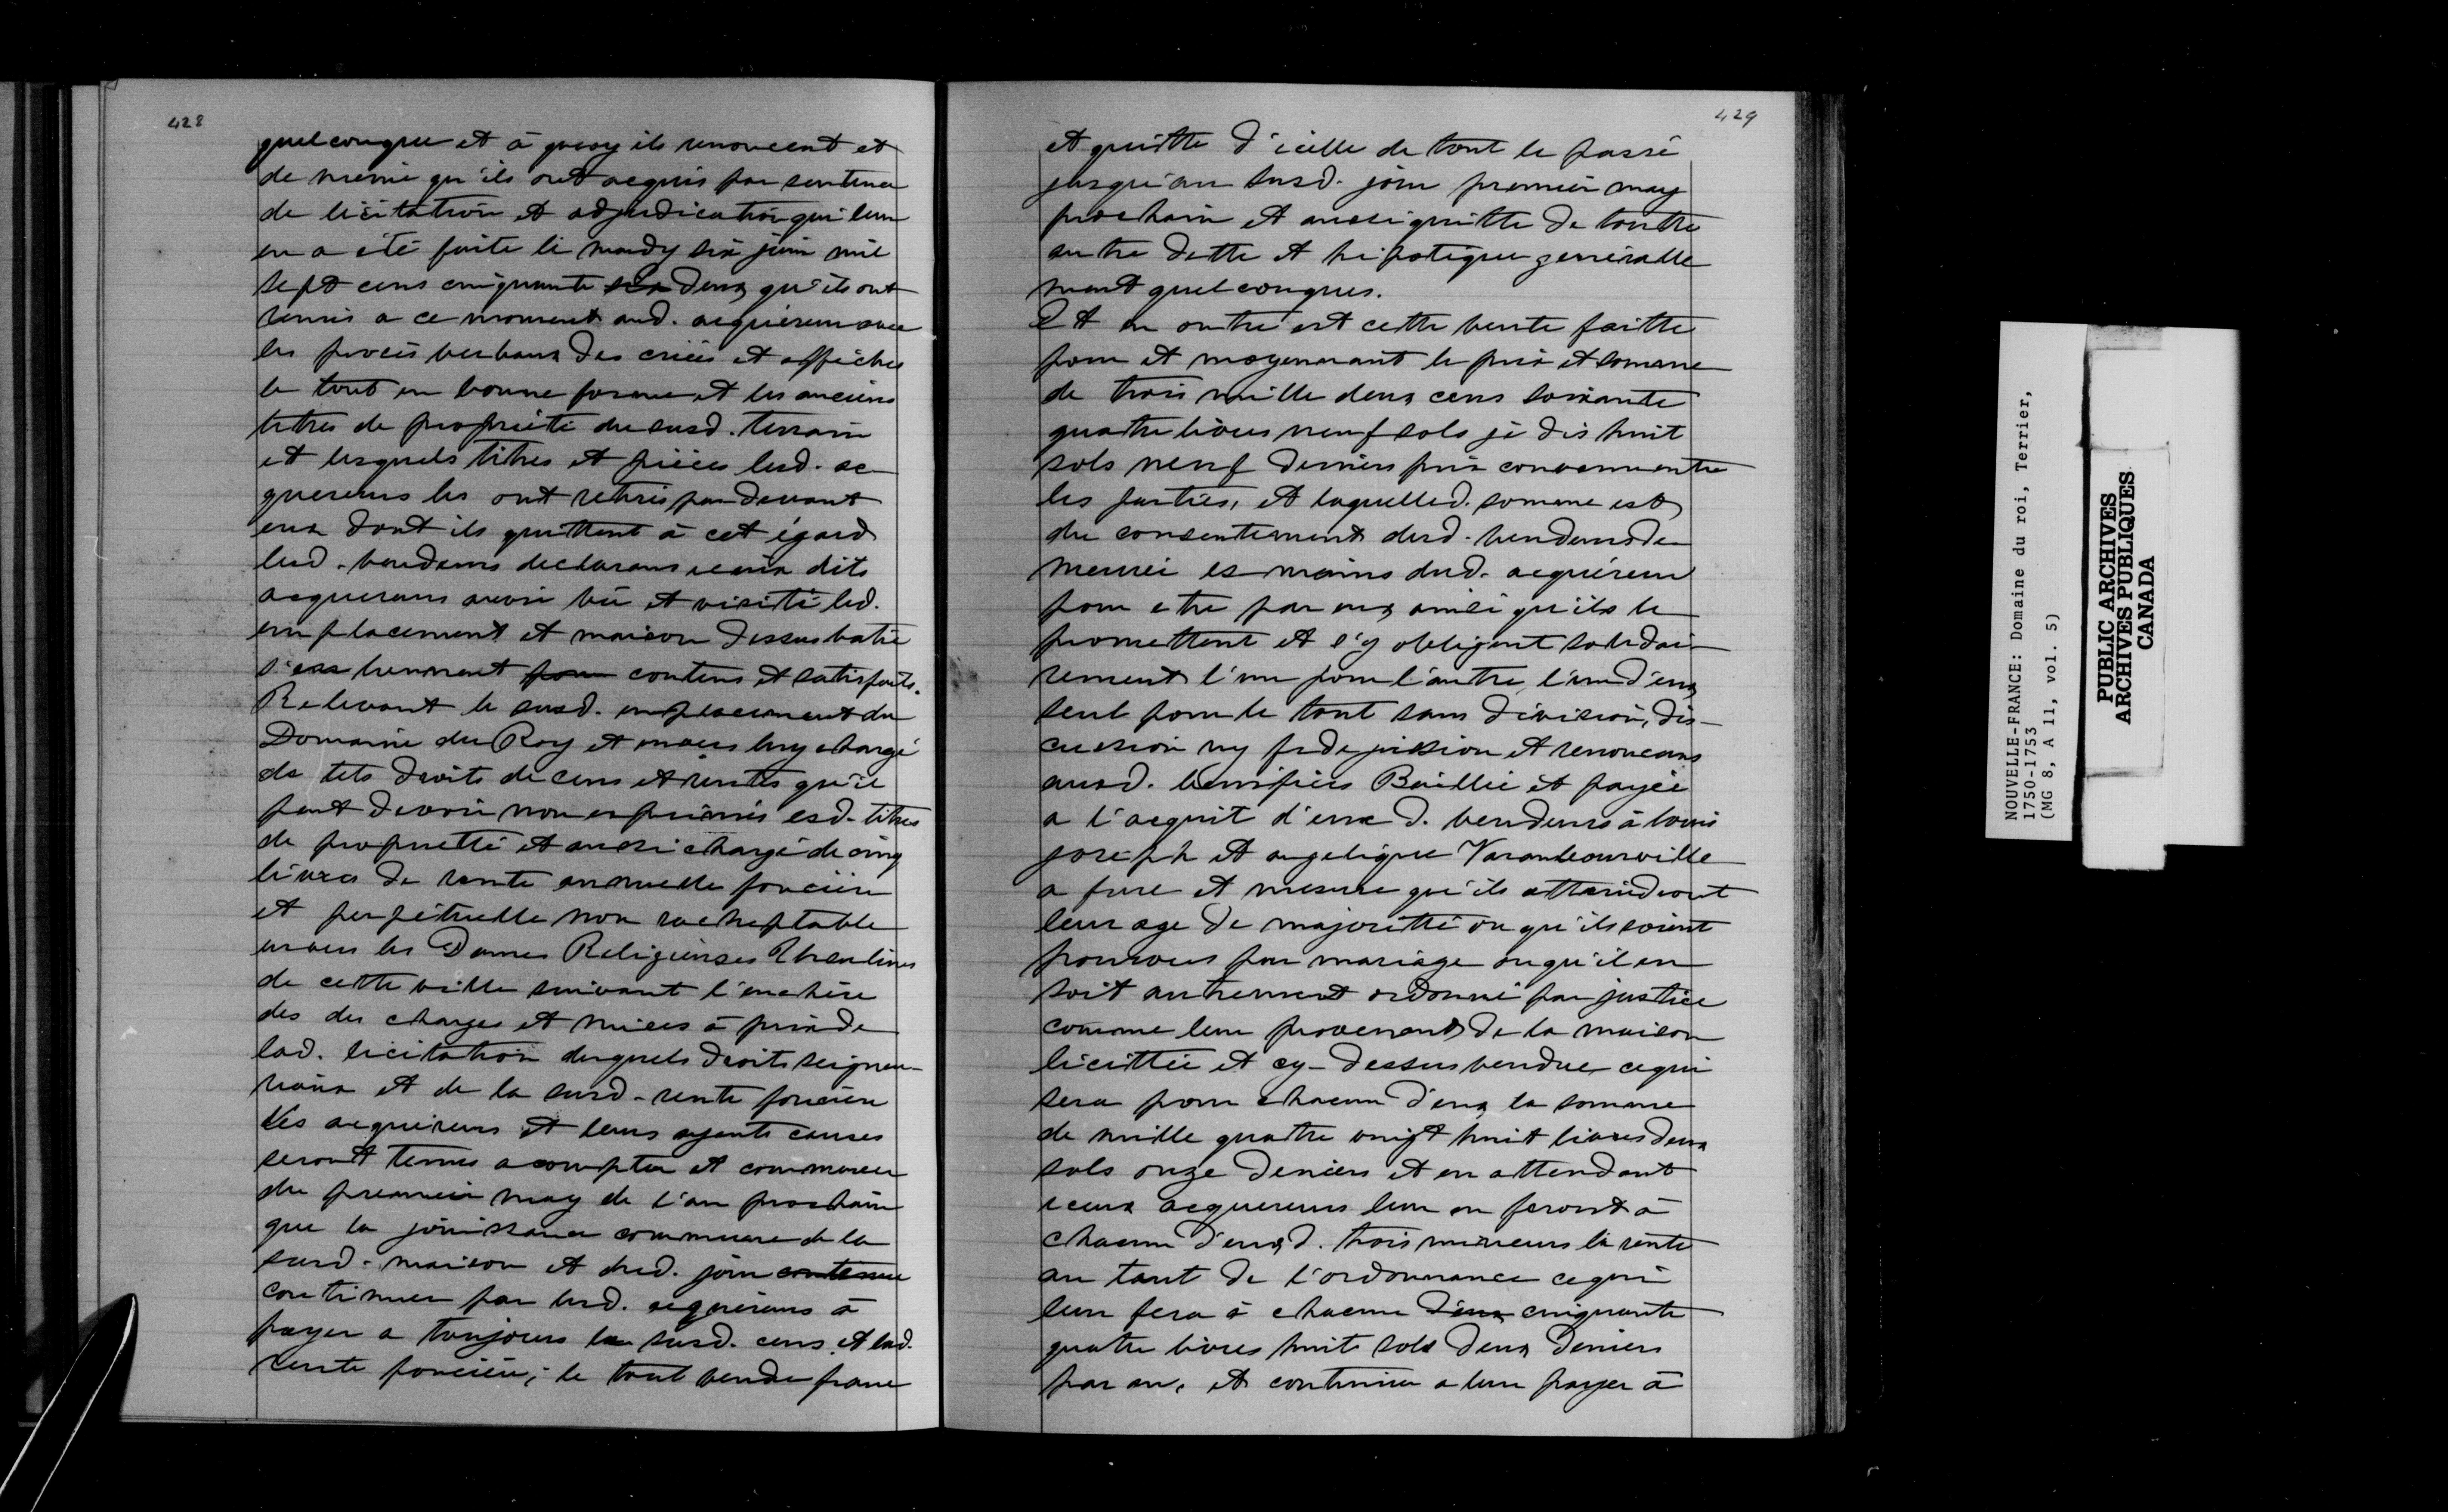 428
quelconque et à quoy ils renoncent et
de meme qu'ils ont acquis par sentence
de licitation et adjudication qui leur
en a été faite le mardy six juin mil
sept cens cinquante six deux qu'ils ont
remis a ce moment aud. acquereurs avec
les procès verbaux des criées et affiches
le tout en bonne forme et les anciens
titres de propriété du susd. terrain
et lesquels titres et pièces lesd. ac-
quereurs les ont retirés par devant
eux dont ils quittent à cet égard
lesd. vendeurs declarans iceux dits
acquereurs avoir vû et visité led.
emplacement et maison dessus batie
s'en tiennent pour contens et satisfaits.
Relevant le susd. emplacement du
Domaine du Roy et envers luy chargé
de tels droits de cens et rentes qu'il
peut devoir non exprimés esd. titres
de proprietté et aussi chargé de cinq
livres de rente annuelle foncière
et perpétuelle non racheptable
envers les Dames Religieuses Ursulines
de cette ville suivant l'enchère
des des charges et mises à prix de
lad. licitation desquels droits seigneu-
riaux et de la susd. rente foncière
les acquéreurs et leurs ayants causes
seront tenus acompter et commencer
du premier may de l'an prochain
que la jouissance commence de la
susd. maison et dud. jour contenue
continuer par lesd. acquéreurs à
payer a toujours le susd. cens et lad.
rente foncière; le tout vendu franc
429
et quitte d'icelle de tout le passé
jusqu'au susd. jour premier may
prochain et aussi quitte de toutte
autre dette et hipotèque generalle
ment quelconques.
Et en outre est cette vente faitte
pour et moyennant le prix et somme
de trois mille deux cens soixante
quatre livres neuf sols je dis huit
sols neuf deniers prix convenu entre
les parties, et laquelle d. somme est
du consentement desd. vendeurs de
meurée es mains dud. acquéreur
pour etre par eux ainsi qu'ils le
promettent et s'y obligent solidai-
rement l'un pour l'autre, l'un d'eux
seul pour le tout sans division, dis-
cussion ny fidejussion et renoncans
ausd. benefices Baillée et payée
a l'acquit d'eux d. vendeurs à louis
joseph et angelique Varambourville
a fure et mesure qu'ils atteindront
leur age de majoritté ou qu'ils soient
pourvus par mariage ou qu'il en
soit autrement ordonné par justice
comme leur provenant de la maison
licittée et cy-dessus vendue, ce qui
sera pour chacun d'eux la somme
de mille quatre vingt huit livres deux
sols onze deniers et en attendant
iceux acquereurs leur en feront à
chacun d'eux d. trois mineurs la rente
au taut de l'ordonnance ce qui
leur fera à chacun d'eux cinquante
quatre livres huit sols deux deniers
par an, et continuer a leur payer à
NOUVELLE-FRANCE: Domaine du roi, Terrier,
1750-1753
(MG 8, A 11, vol. 5)
PUBLIC ARCHIVES
ARCHIVES PUBLIQUES
CANADA